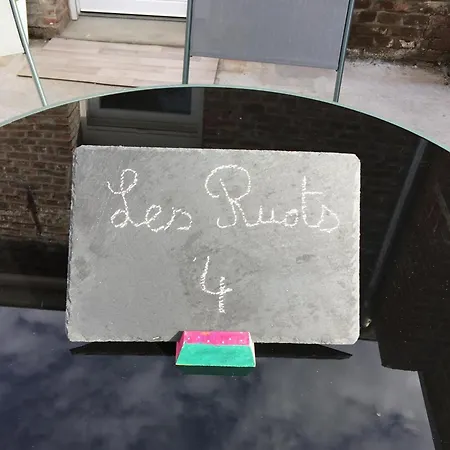 Les Ruots
4